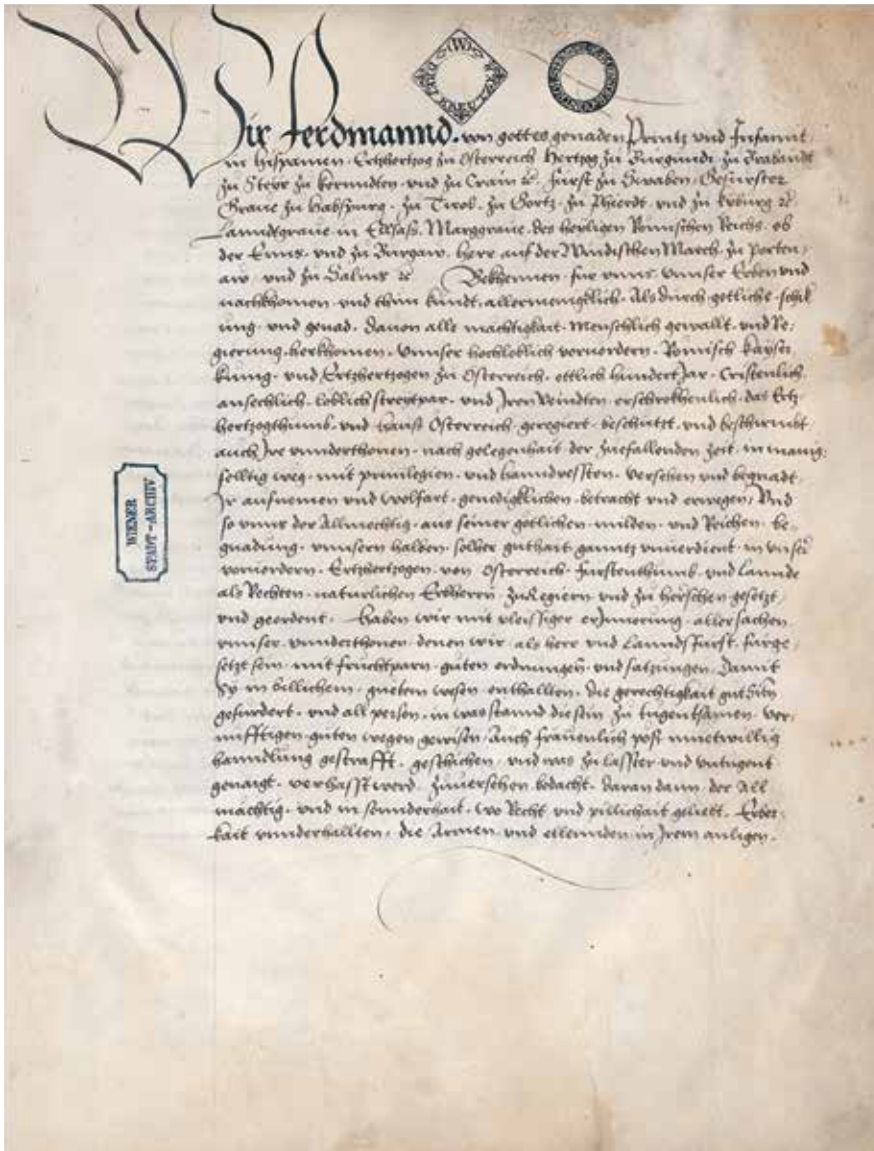 Wir Ferdinannd. von gottes genaden Printz und Infannt.
in Hispanien. Ertzhertzog zu Osterreich. Hertzog zu Burgundi. zu Brabandt
zu Steyr zu Kernndten. und zu Crain ꝛc. Fürst zu Swaben. Gefürster
Grave zu Habspurg. zu Tirol. zu Gortz. zu Phierdt. und zu Kyburg ꝛc.
Lanndtgrave in Ellsass. Marggrave. des heyligen Römischen Reichs. ob
der Enns. und zu Burgaw. Herr auf der Windischen March. zu Porten-
aw und zu Salins ꝛc Bekhennen für unns. unnser Erben und
nachkhomen. und thun kundt. allermenigklich. Als durch gotliche schik
ung. und genad. davon alle mächtigkait. Menschlich gewallt. und Re-
gierung. herkhomen. Unnser hochloblich vorvordern. Römisch kayser
kunig. und Ertzhertzogen zu Osterreich. ettlich hundert Jar. Cristenlich
ansechlich. loblich streytpar. und Iren Veindten. erschrekhenlich. das Ertz
hertzogthumb. und hauss Osterreich. geregiert. beschützt. und beschirmbt.
auch Ire unnderthonen. nach gelegenhait der zuefallenden zeit. in manig-
felltig weg. mit privilegien. und hanndvessten. versehen und begnadt.
Ir aufnemen und wolfart. genedigklichen. betracht und erwegen. Und
so unns der Allmechtig. aus seiner gotlichen milden. und Reichen. be-
gnadung. unnsern halben. solher guthait ganntz unverdient. in unser
vorvordern. Ertzhertzogen. von Osterreich. Fürstenthumb. und Lannde
als Rechten. naturlichen Erbherrn. zu Regiern und zu herschen gesetzt
und geordent. Haben wir mit vleissiger erInnerung. aller sachen
unnser. unnderthonen. denen wir. als herr und Lanndsfürst. fürge-
setzt sein. mit fruchtparn. guten ordnungen. und satzungen. Damit
Sy in billichem. guetem wesen. enthallten. die gerechtigkait gut Siten
gefurdert. und all person. in was stannd die sein zu tugentsamen. ver-
nufftigen. guten wegen gewisen. Auch frävenlich poss muetwillig
hanndlung gestrafft. geschichen. und was zu lasster und untugent
genaigt. verhasst werd. zuversehen. bedacht. daran dann. der All
mächtig. und in sonnderhait. wo Recht und pillichait geliebt. Erber-
kait unnderhallten. die Armen. und ellennden in Irem anligen.
WIENER
STADT-ARCHIV